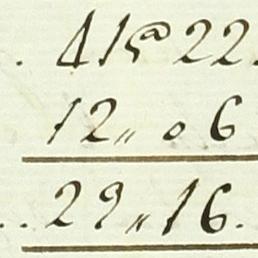 . 41 @ 22.
12 „ 06
.. 29 „ 16.